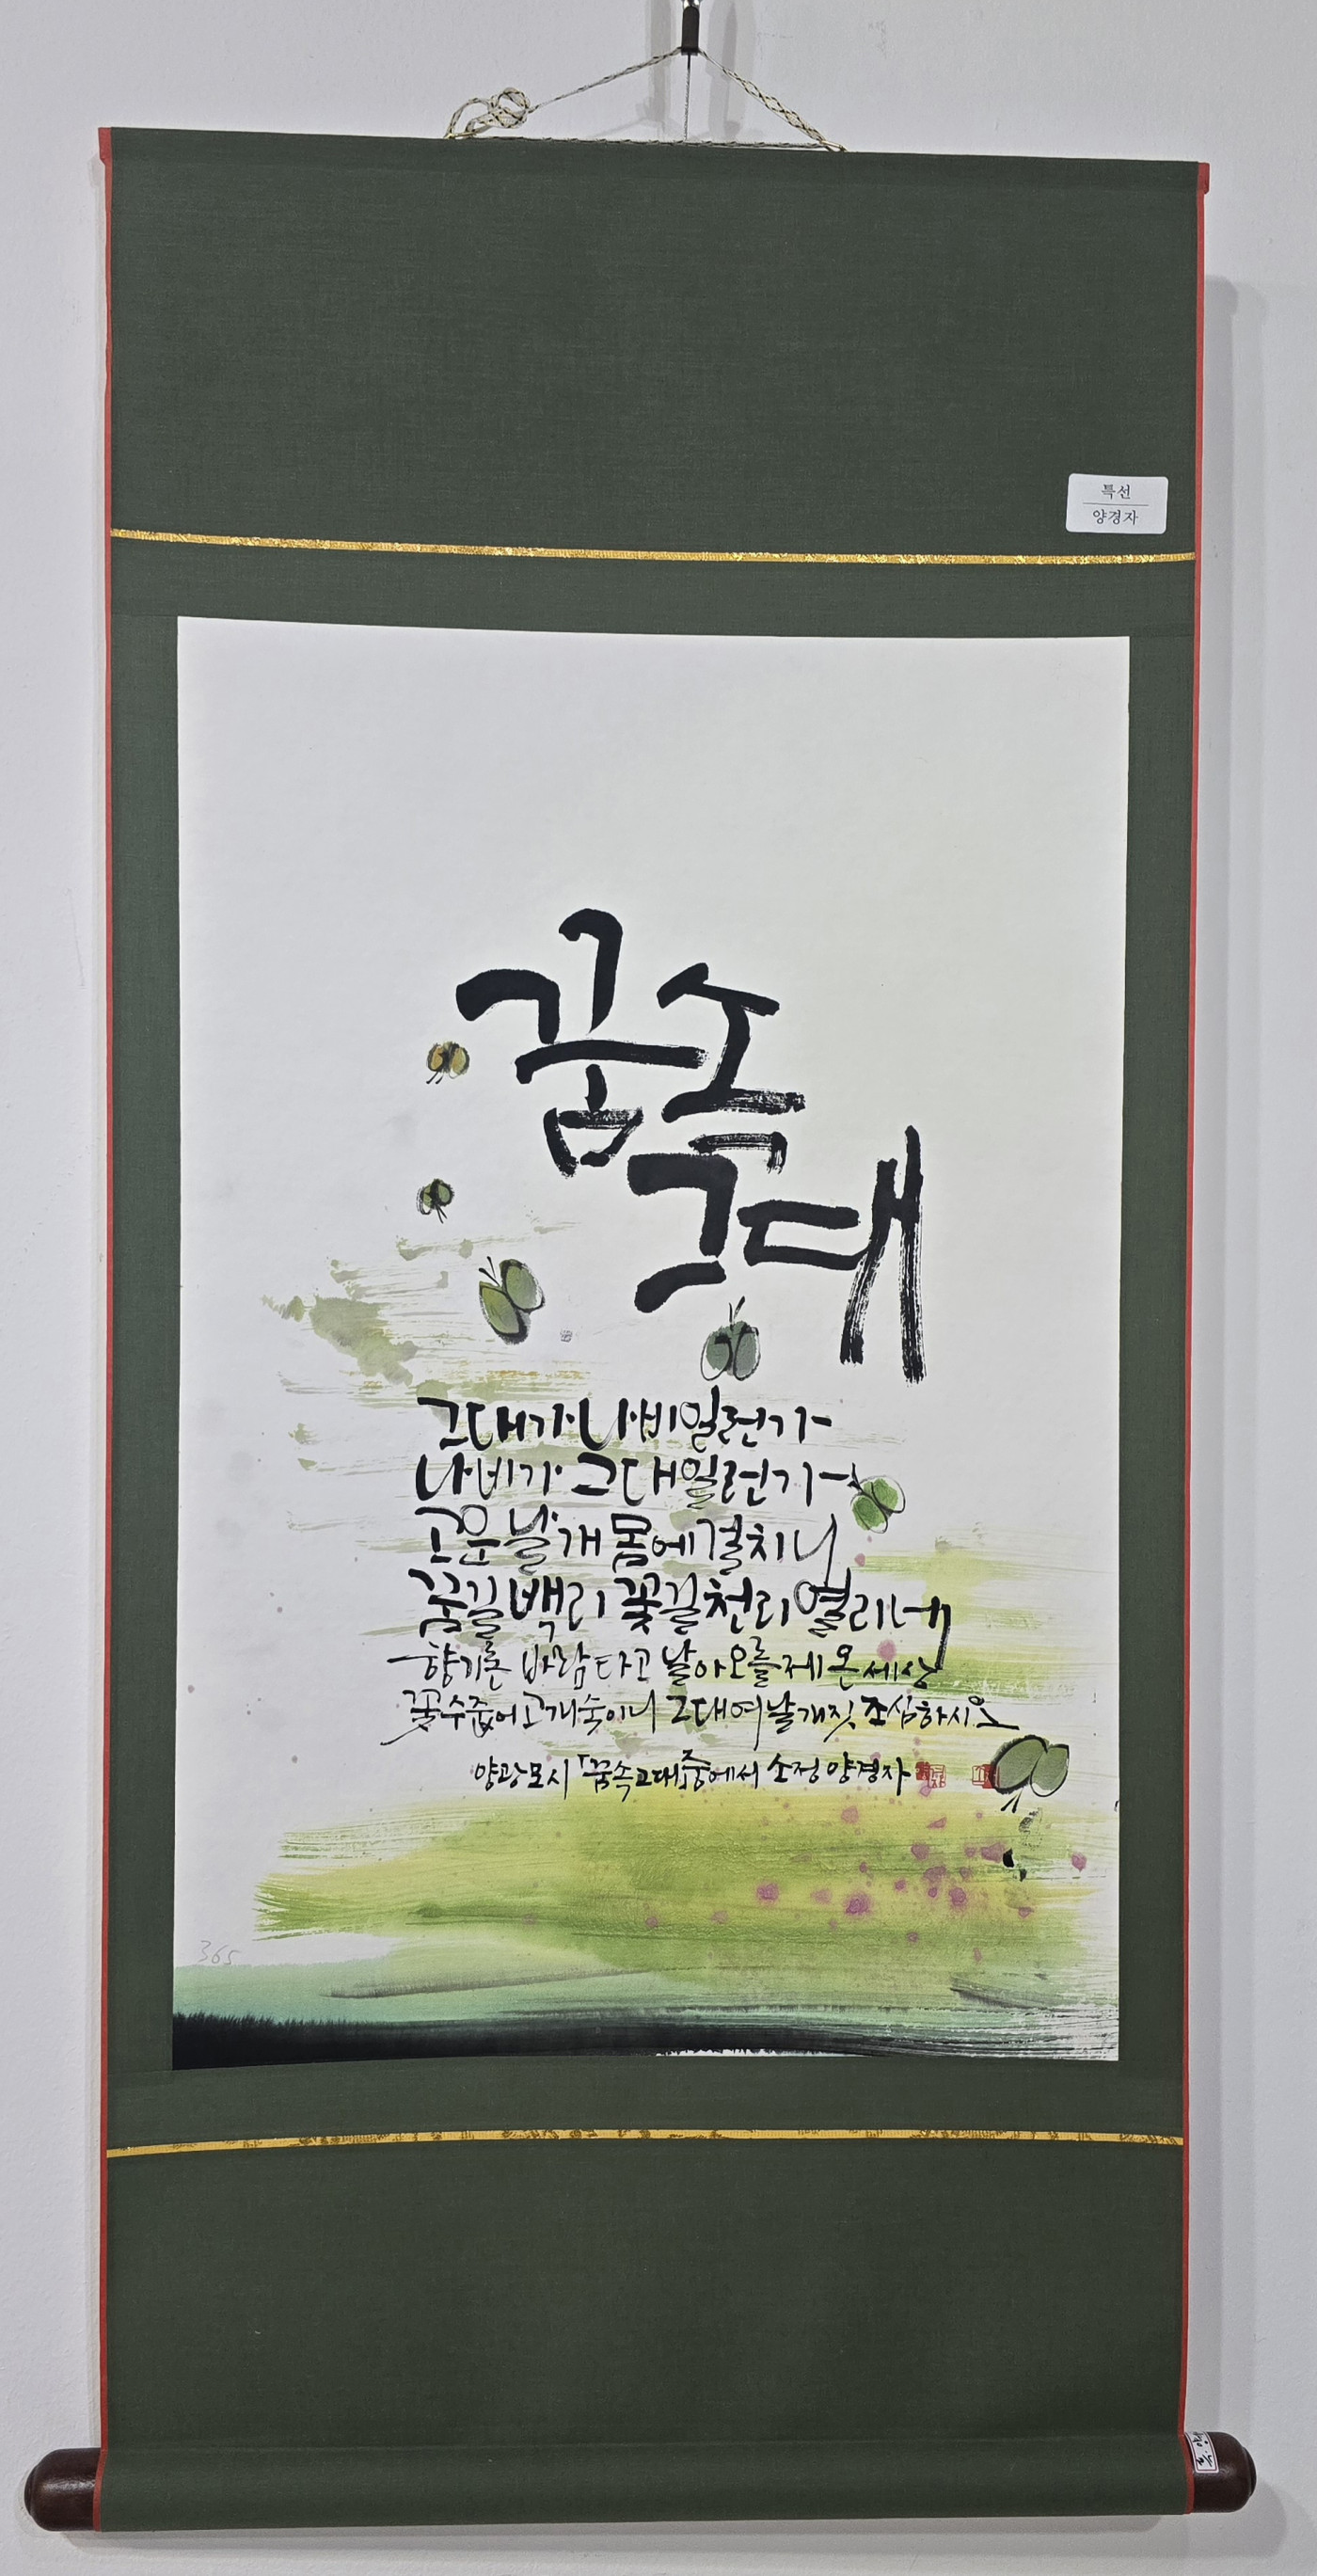 특선
양경자
꿈속
그대
그대가 나비일런가
나비가 그대일런가
고운 날개 몸에 걸치니
꿈길 백리 꽃길 천리 열리네
향기론 바람 타고 날아오를 제 온 세상
꽃 수줍어 고개 숙이니 그대여 날개짓 조심하시오
양광모 시 「꿈속 그대」 중에서 소정 양경자
365